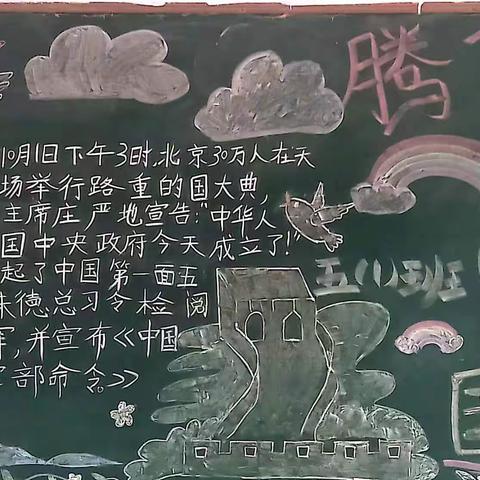 腾
10月1日下午3时,北京30万人在天
场举行路重的国大典,
主席庄严地宣告:“中华人
国中央政府今天成立了!”
起了中国第一面五
朱德总习令检阅
军,并宣布《中国
部命令》
五(1)班